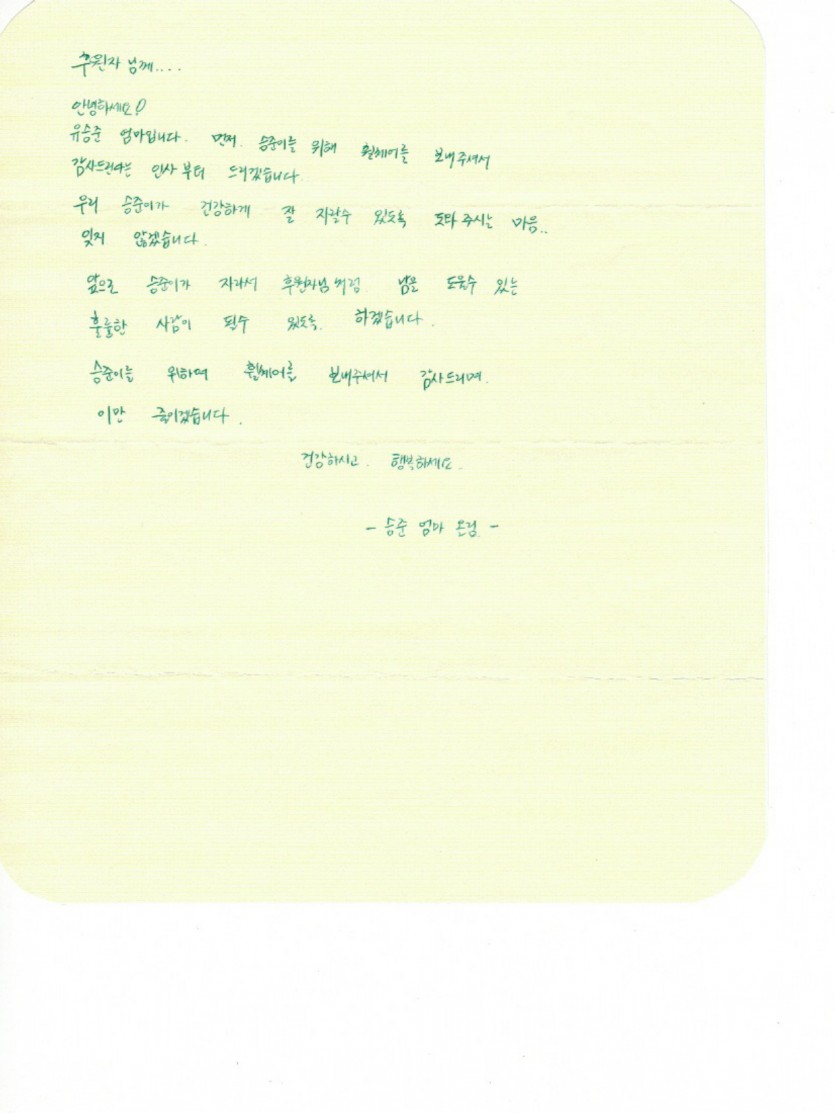 후원자 님께....
안녕하세요?
유승준 엄마입니다. 먼저. 승준이를 위해 휠체어를 보내주셔서
감사드린다는 인사 부터 드리겠습니다.
우리 승준이가 건강하게 잘 자랄수 있도록 도와 주시는 마음..
잊지 않겠습니다.
앞으로 승준이가 자라서 후원자님처럼 남을 도울수 있는
훌륭한 사람이 될수 있도록. 하겠습니다.
승준이를 위하여 휠체어를 보내주셔서 감사드리며.
이만 줄이겠습니다.
건강하시고. 행복하세요.
- 승준 엄마 드림. -